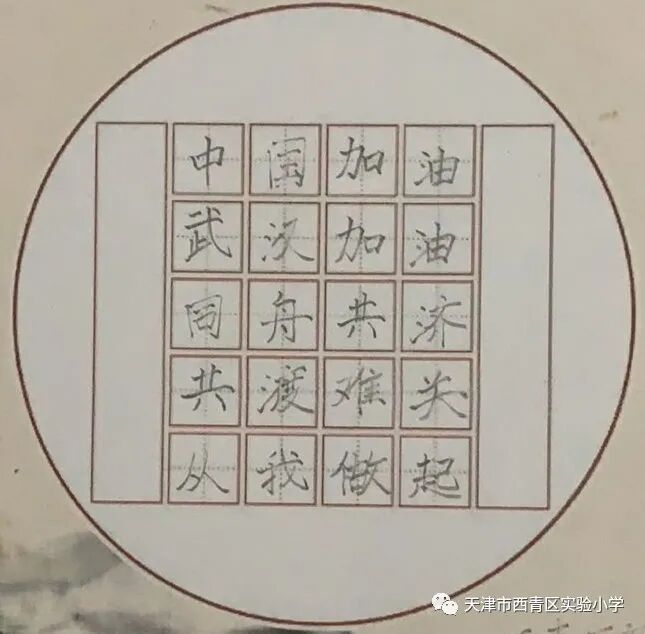 中国加油
武汉加油
同舟共济
共渡难关
从我做起
天津市西青区实验小学